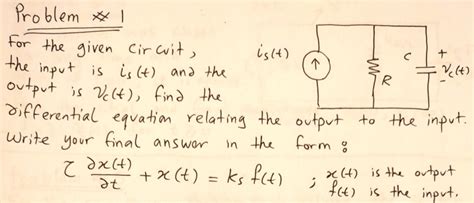 Problem # 1
For the given circuit,
the input is is(t) and the
output is vc(t), find the
differential equation relating the output to the input.
Write your final answer in the form :
τ ∂x(t)/∂t + x(t) = ks f(t) ; x(t) is the output
f(t) is the input.
is(t)
R
C
+
vc(t)
-